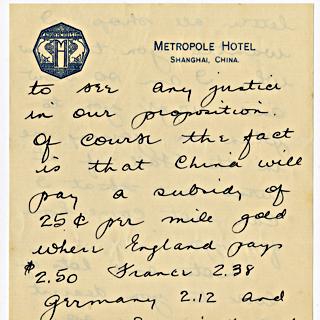 METROPOLE HOTEL
SHANGHAI, CHINA.
to see any justice
in our proposition.
Of course the fact
is that China will
pay a subsidy of
25¢ per mile gold
when England pays
$2.50 France 2.38
Germany 2.12 and